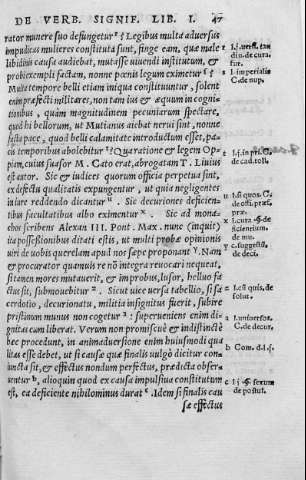 DE VERB. SIGNIF. LIB. I. 47
rator munere suo defungetur ſ? Legibus multa aduersus
impudicas mulieres constituta sunt, finge eam, quæ male
libidinis causa audiebat, mutasse viuendi institutum, &
probi exempli factam, nonne pœnis legum eximetur t?
Multa tempore belli etiam iniqua constituuntur, solent
enim præfecti militares, non tam ius & æquum in cogni-
tionibus, quàm magnitudinem pecuniarum spectare,
quod hi bellorum, ut Mutianus aiebat nerui sint, nonne
iusta pace, quod belli calamitate introductum esset, pa-
cis temporibus abolebitur? Qua ratione & legem Op-
piam, cuius suasor M. Cato erat, abrogatam T. Liuius
est autor. Sic & iudices quorum officia perpetua sint,
ex defectu qualitatis expunguntur, ut quia negligentes
in iure reddendo dicantur u. Sic decuriones deficien-
tibus facultatibus albo eximentur x. Sic ad mona-
chos scribens Alexan III. Pont. Max. nunc (inquit)
ita possessionibus ditati estis, ut multi probæ opinionis
uiri de uobis querelam apud nos sæpe proponant y. Nam
& procurator quamuis re nō integra reuocari nequeat,
si tamen mores mutauerit, & improbus, lusor, belluo fa
ctus sit, submouebitur z. Sicut uice uersa tabellio, si sa
cerdotio, decurionatu, militia insignitus fuerit, subire
pristinum munus non cogetur a: superueniens enim di-
gnitas eum liberat. Verum non promiscuè & indistinctè
hæc procedunt, in animaduersione enim huiusmodi qua
litas esse debet, ut si causa quæ finalis uulgò dicitur con-
iuncta sit, & effectus nondum perfectus, prædicta obser-
uentur b, alioquin quod ex causa impulsiua constitutum
est, ea deficiente nihilominus durat c. Idem si finalis cau
sæ effectus
ſ l. j. uersi. tan
diu. de cura.
fur.
t l. imperialis
C. de nup.
l. j. in pri. C.
de cad. toll.
u l. si quos. C.
de offi. præf.
præ.
x l. cura. §. de
ficientium.
de mu.
y c. suggestū.
de deci.
z l. est quis. de
solut.
a l. uniuersos.
C. de decur.
b Com. d. l. j.
c l. j. §. sexum
de postul.